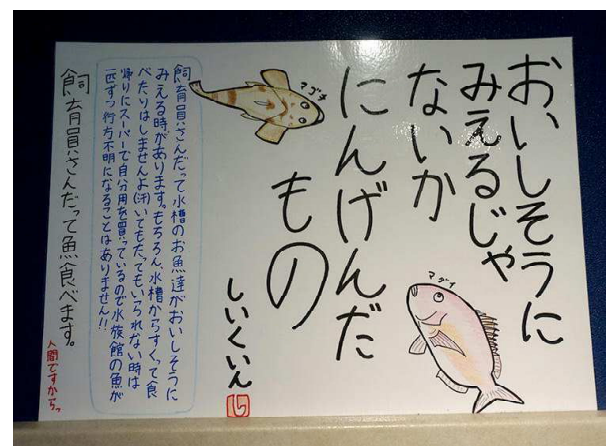 おいしそうに
みえるじゃ
ないか
にんげんだ
もの
しいくいん
し
マダイ
マゴチ
飼育員さんだって水槽のお魚達がおいしそうに
みえる時があります。もちろん、水槽からすくって食
べたりはしませんよ(汗)いてもたってもいられない時は
帰りにスーパーで自分用を買っているので水族館の魚が
一匹ずつ行方不明になることはありません!!
飼育員さんだって魚食べます。
人間ですからっ